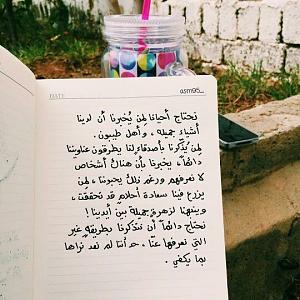 DATE
asm95_
نحتاج أحيانا لمن يُخبرنا أن لدينا
أشياءٍ جميله ، وأهل طيبون .
لمن يذكرنا بأصدقاء لنا يطرقون عناويننا
دائماً، يخبرنا بأن هناك أشخاص
لا نعرفهم ورغم ذلك يحبوننا ، لمن
يزرع فينا سعادة أحلام قد تحققت ،
وينبهنا لزهرة جميلة بين أيدينا !
نحتاج دائماً أن تتذكرنا بطريقةٍ غير
التي نعرفها عنّا ، حد أننا لم نعد نراها
بما يكفي .